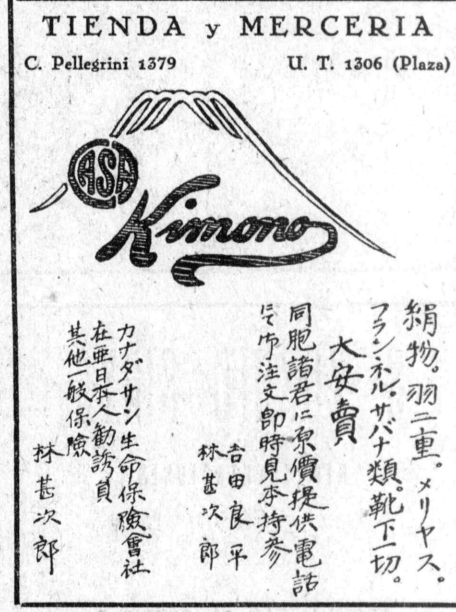 TIENDA y MERCERIA
C. Pellegrini 1379 U. T. 1306 (Plaza)
CASA
Kimono
絹物。羽二重。メリヤス。
フランネル。サバナ類、靴下一切。
大安賣
同胞諸君に原價提供電話
にて御注文即時見本持參
吉田良平
林甚次郎
カナダサン生命保險會社
在亜日本人勧誘員
其他一般保險
林甚次郎